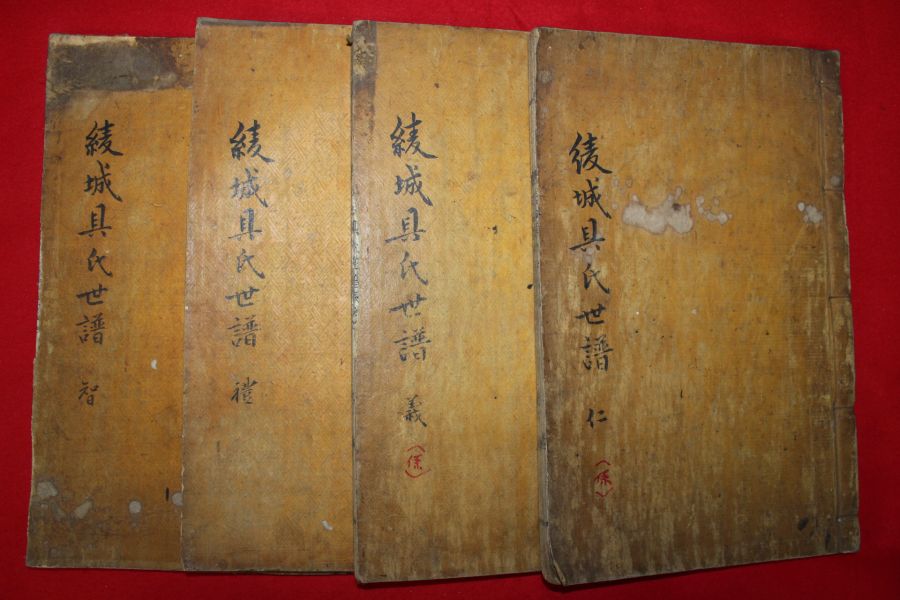 綾城具氏世譜 仁
(係)
綾城具氏世譜 義
(係)
綾城具氏世譜 禮
綾城具氏世譜 智